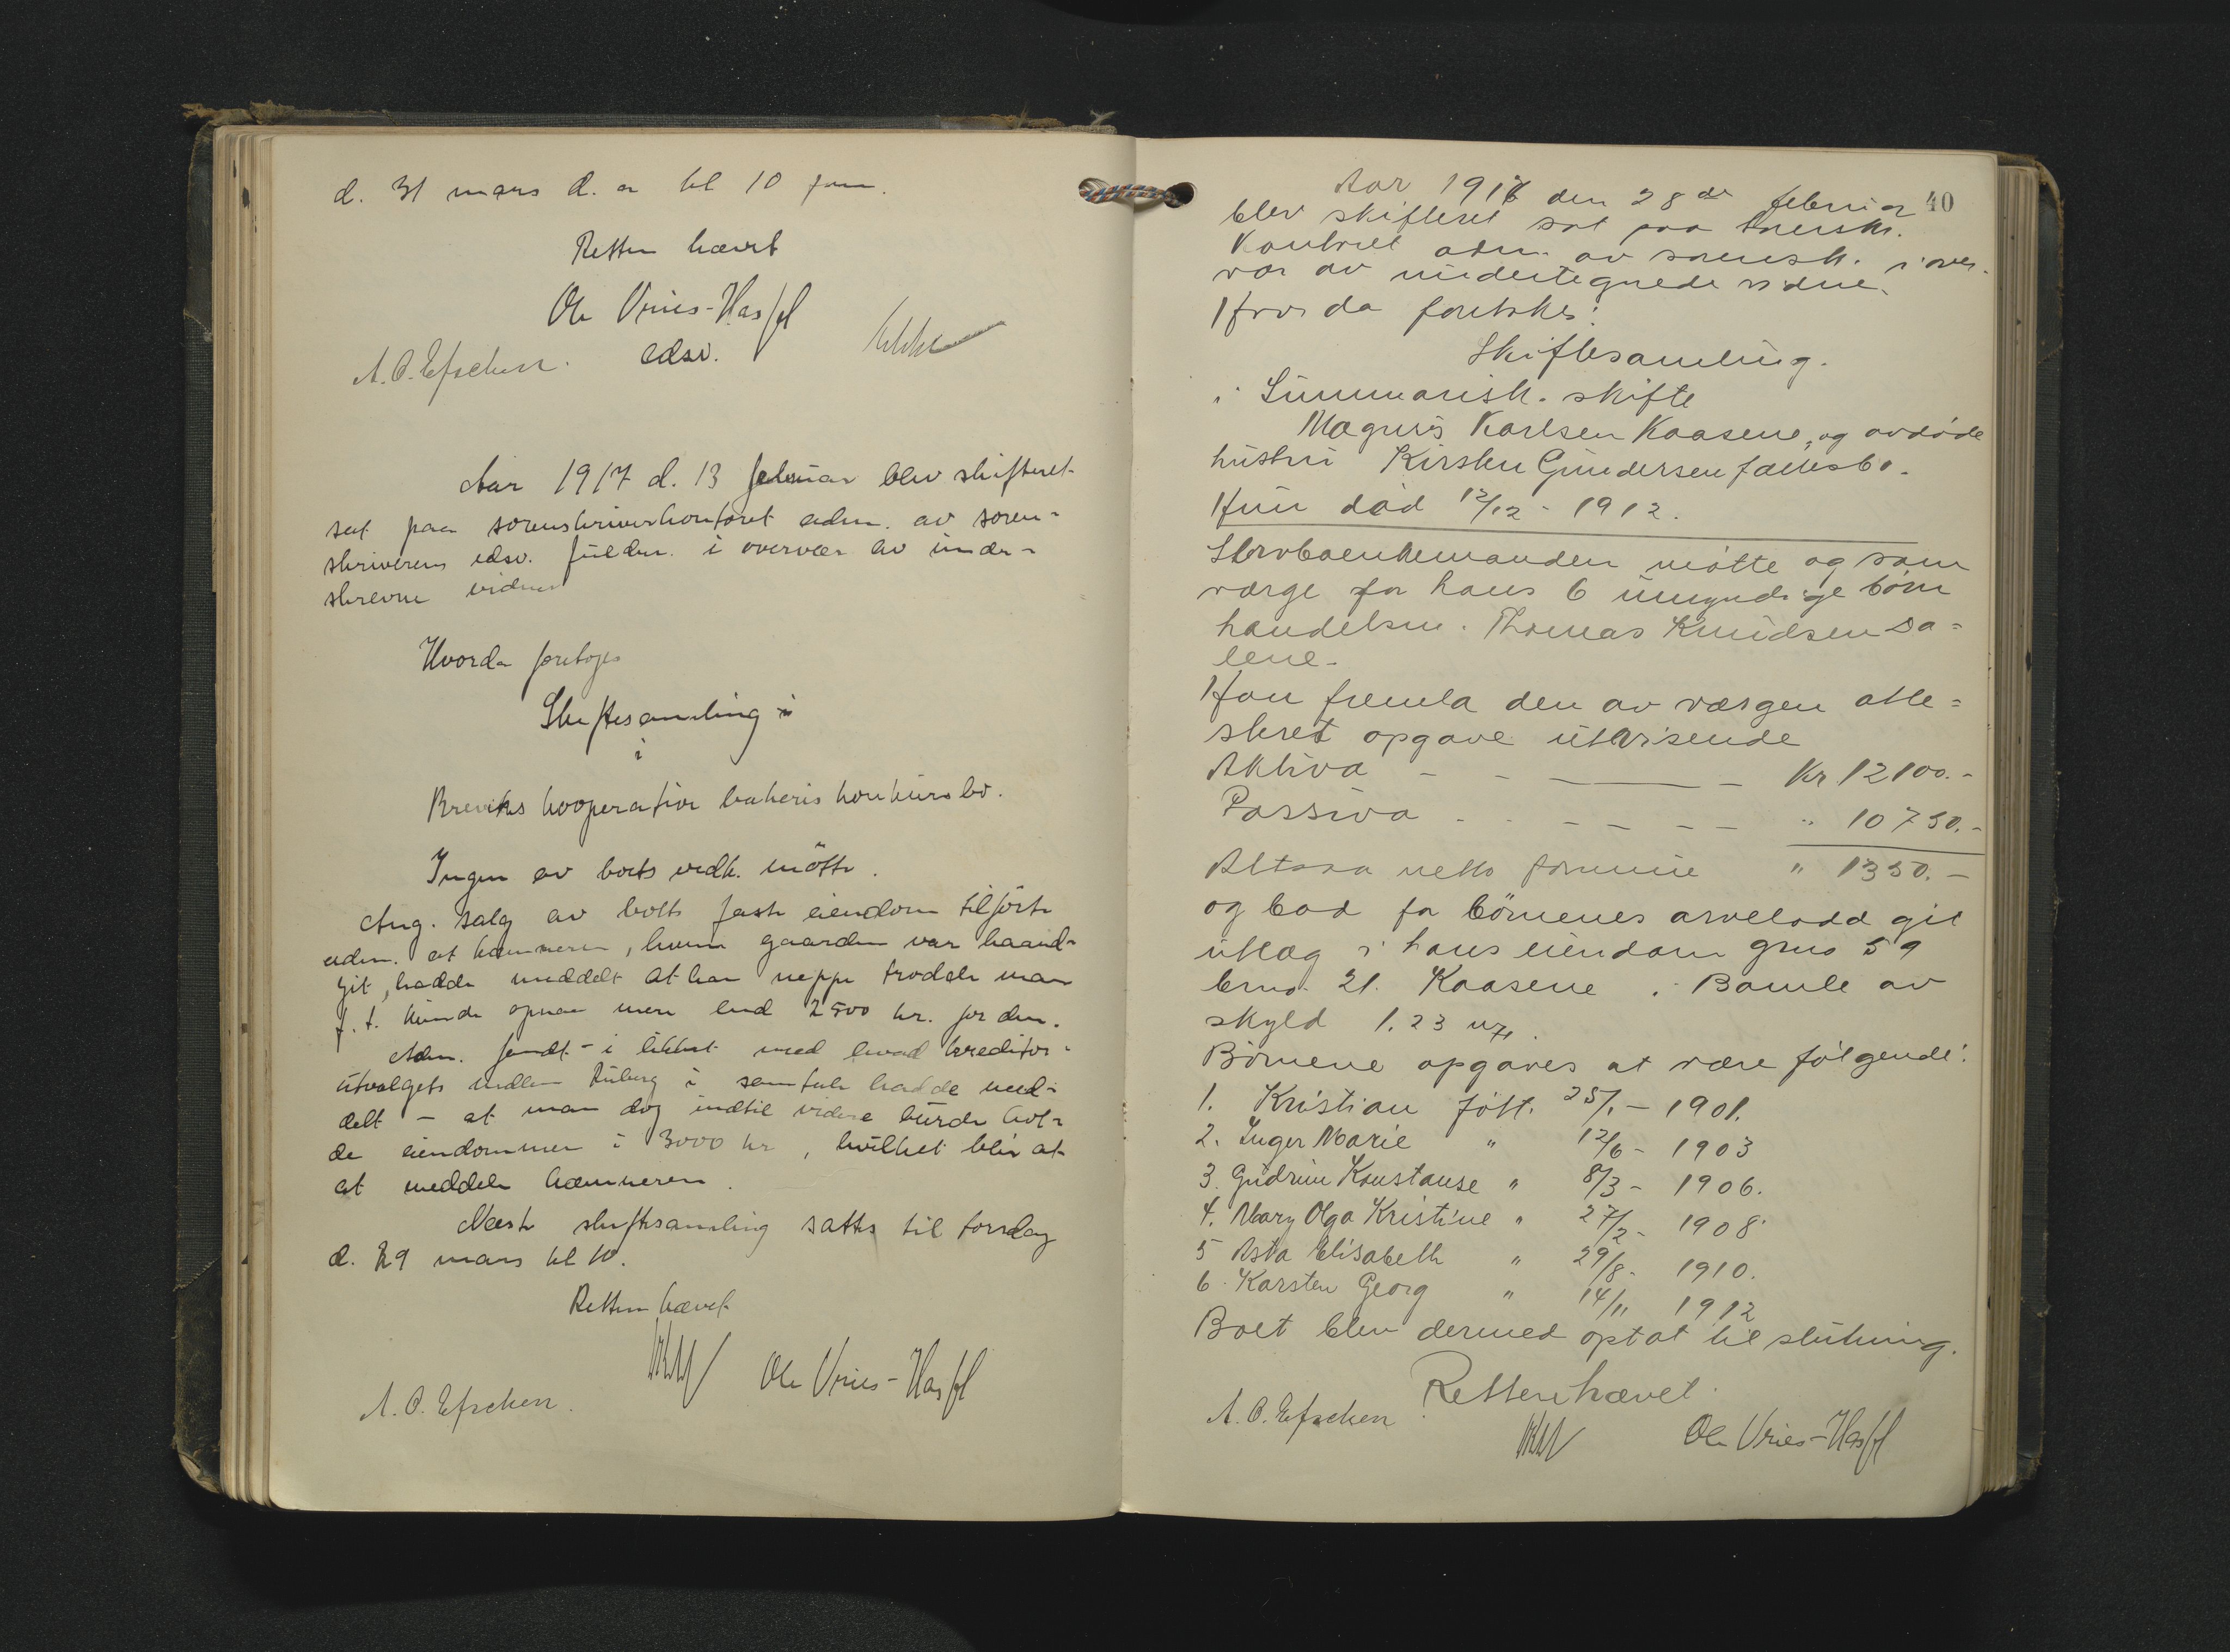 d. 31 mars d. a kl 10 form.
Retten hævet
Ole Vries-Hassel
A. O. Efschen. edsv.
Aar 1917 d. 13 februar blev skifteret
sat paa sorenskriverkontoret adm. av soren-
skriverens edsv. fuldm. i overvær av under-
skrevne vidner
Hvorda foretoges
Skiftesamling i
i
Breviks kooperative bakeris konkursbo.
Ingen av boets vedk. mötte.
Ang. salg av boets faste eiendom tilförte
adm. at kæmneren, hvem gaarden var haand-
git, hadde meddelt at han neppe trodde man
f. t. kunde opnaa mere end 2500 kr. for den.
Adm. fandt - i likhet med hvad kreditor-
utvalgets medlem i samtale hadde med-
delt - at man dog indtil videre burde hol-
de eiendommen i 3000 kr, hvilket blir at
at meddele kæmneren.
Næste skiftesamling sattes til torsdag
d. 29 mars kl 10.
Retten hævet
Ole Vries-Hassel
A. O. Efschen.
40
Aar 1917 den 28de februar
blev skifteret sat paa sorensk.
kontoret adm. av sorensk. i over-
vær av undertegnede vidne.
Hvor da foretokes:
Skiftesamling.
i Summarisk. skifte
Magnus Karlsen Kaasene, og avdöde
hustru Kirsten Gundersen fællesbo.
Hun död 12/12 - 1912.
Stervboenkemanden mötte og som
værge for hans 6 umyndige börn
handelsm. Thomas Knudsen Sa-
lene.
Han fremla den av værgen atte-
steret opgave utvisende
Aktiva - - - Kr. 12100.-
Passiva - - - - - " 10750.-
Altsaa netto formue " 1350.-
og bad for börnenes arvelodd git
utlæg i hans eiendom gno 59
brno. 21. Kaasene i Bamle av
skyld 1.23 mk.
Börnene opgaves at være fölgende:
1. Kristian födt. 25/1 - 1901.
2. Inger Marie " 12/6 - 1903
3. Gudrun Konstanse " 8/3 - 1906.
4. Mary Olga Kristine " 27/2 - 1908.
5 Asta Elisabeth " 29/8 - 1910.
6. Karsten Georg " 14/11 1912
Boet blev dermed optat til slutning.
Retten hævet.
A. O. Efschen Ole Vries-Hassel